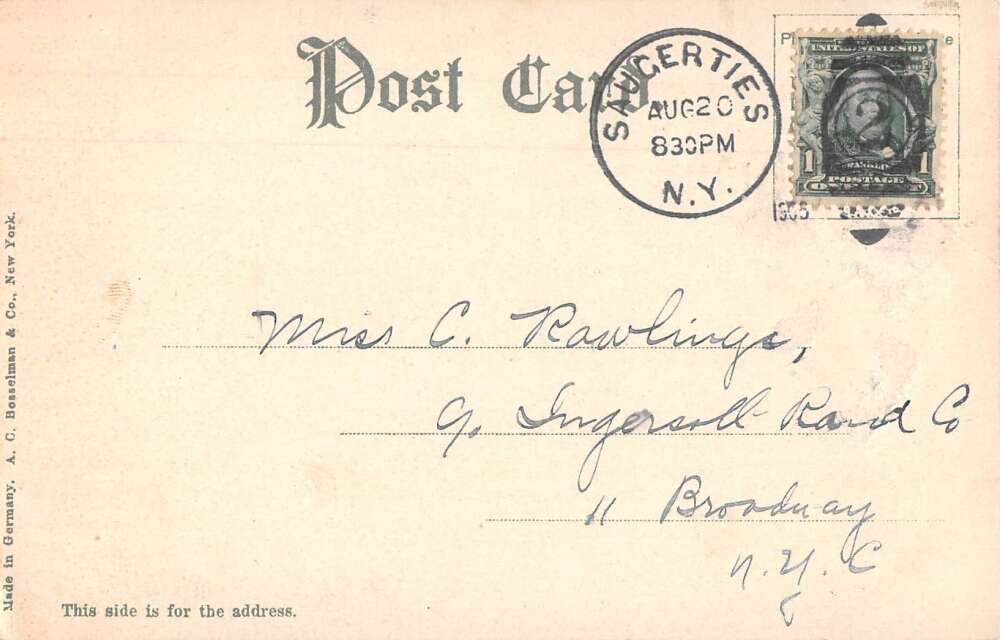 Post Card
SAUGERTIES
AUG 20
830PM
N.Y.
UNITED STATES OF
2
1 1
POSTAGE
Miss C. Rawlings,
c/o Ingersoll-Rand Co
11 Broadway
N.Y.C
Made in Germany. A. C. Bosselman & Co., New York.
This side is for the address.